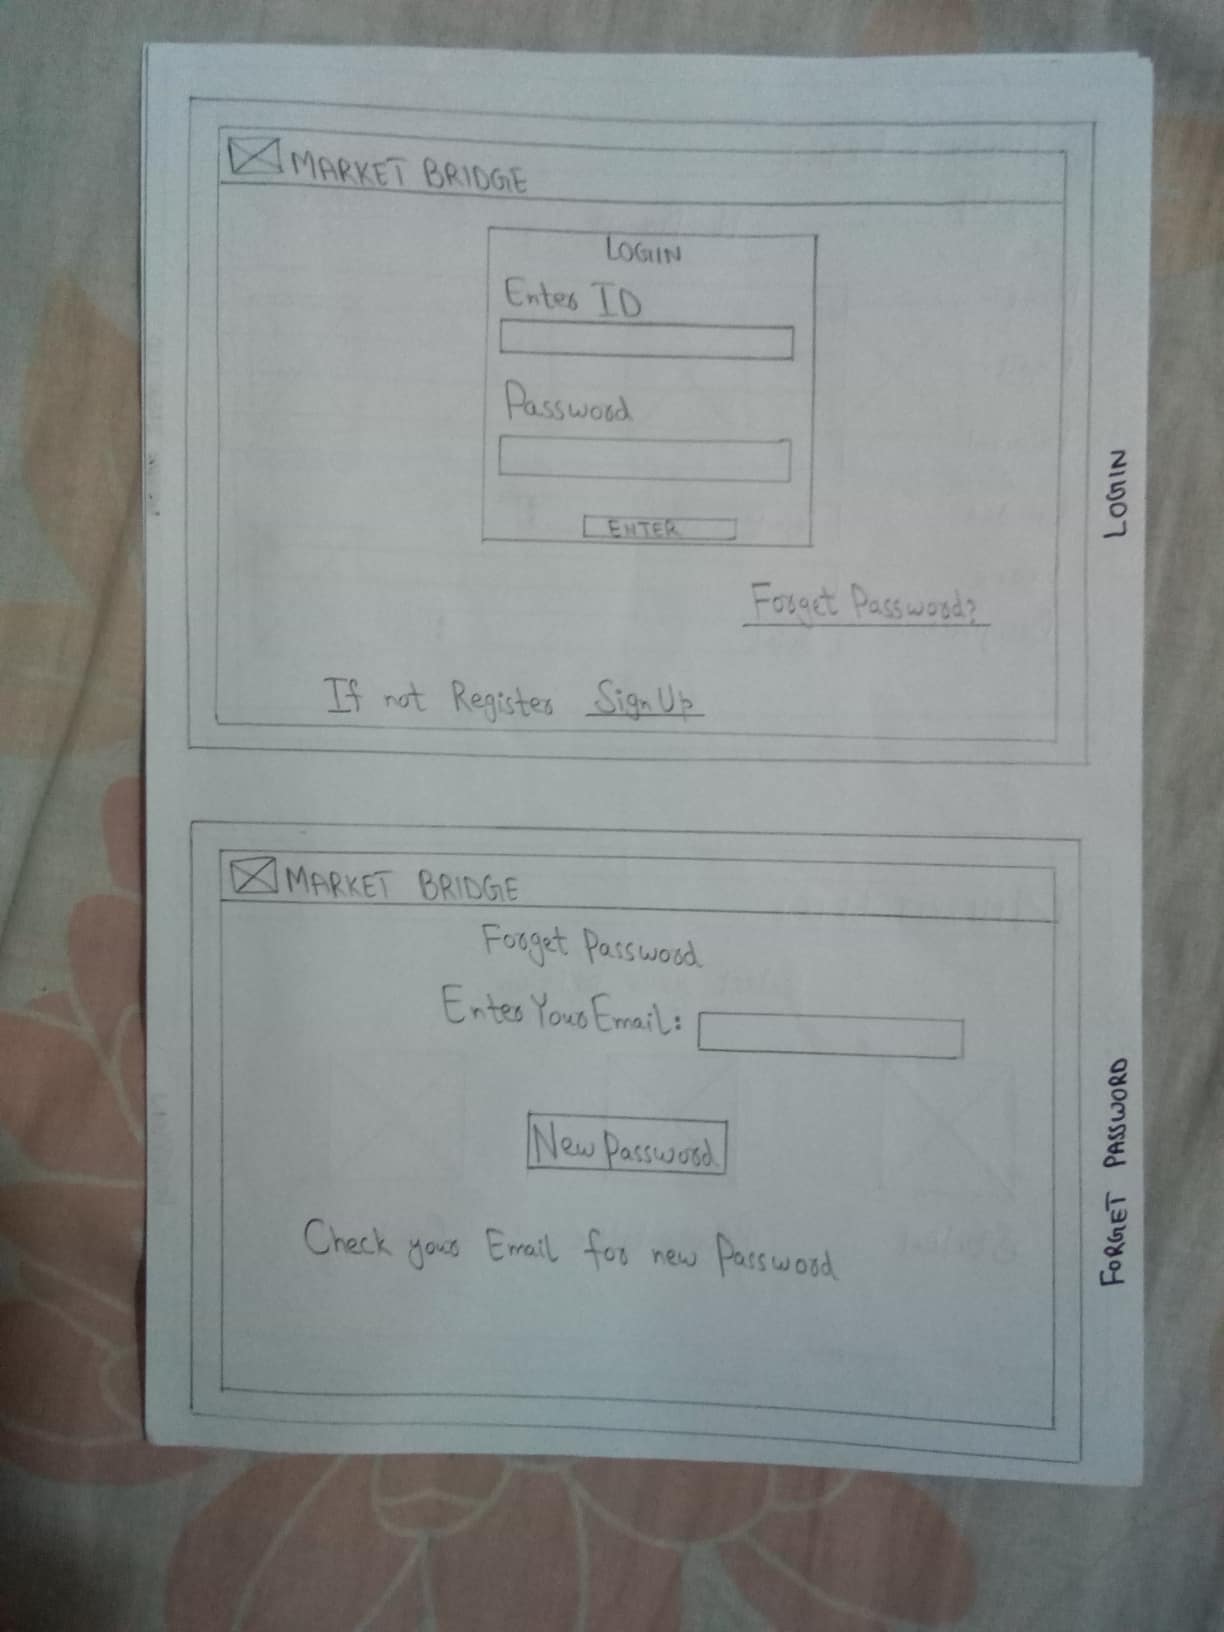 MARKET BRIDGE
LOGIN
Enter ID
Password
ENTER
Forget Password?
If not Register Sign Up
LOGIN
MARKET BRIDGE
Forget Password
Enter Your Email:
New Password
Check your Email for new Password
FORGET PASSWORD